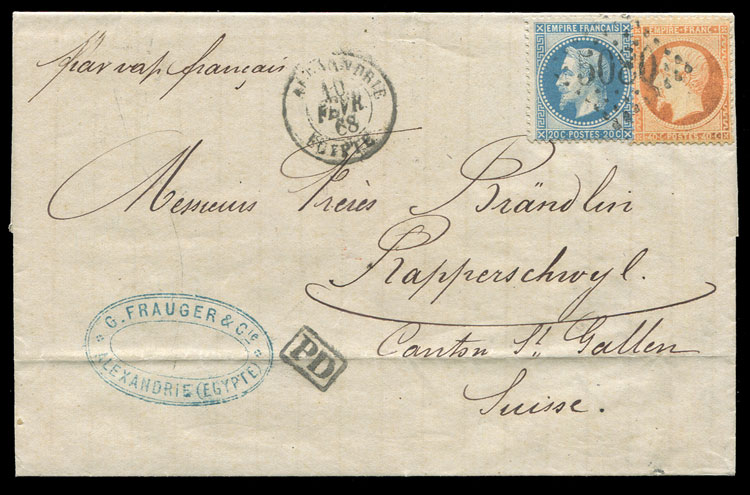 par vap. français
ALEXANDRIE
10
FEVR
68
EGYPTE
EMPIRE FRANÇAIS
20C POSTES 20C
EMPIRE FRANC
40C POSTES 40C
5080
Messieurs Frères Brändlin
Rapperschwyl.
Canton St Gallen
Suisse.
G. FRAUGER & Cie
ALEXANDRIE (EGYPTE)
PD